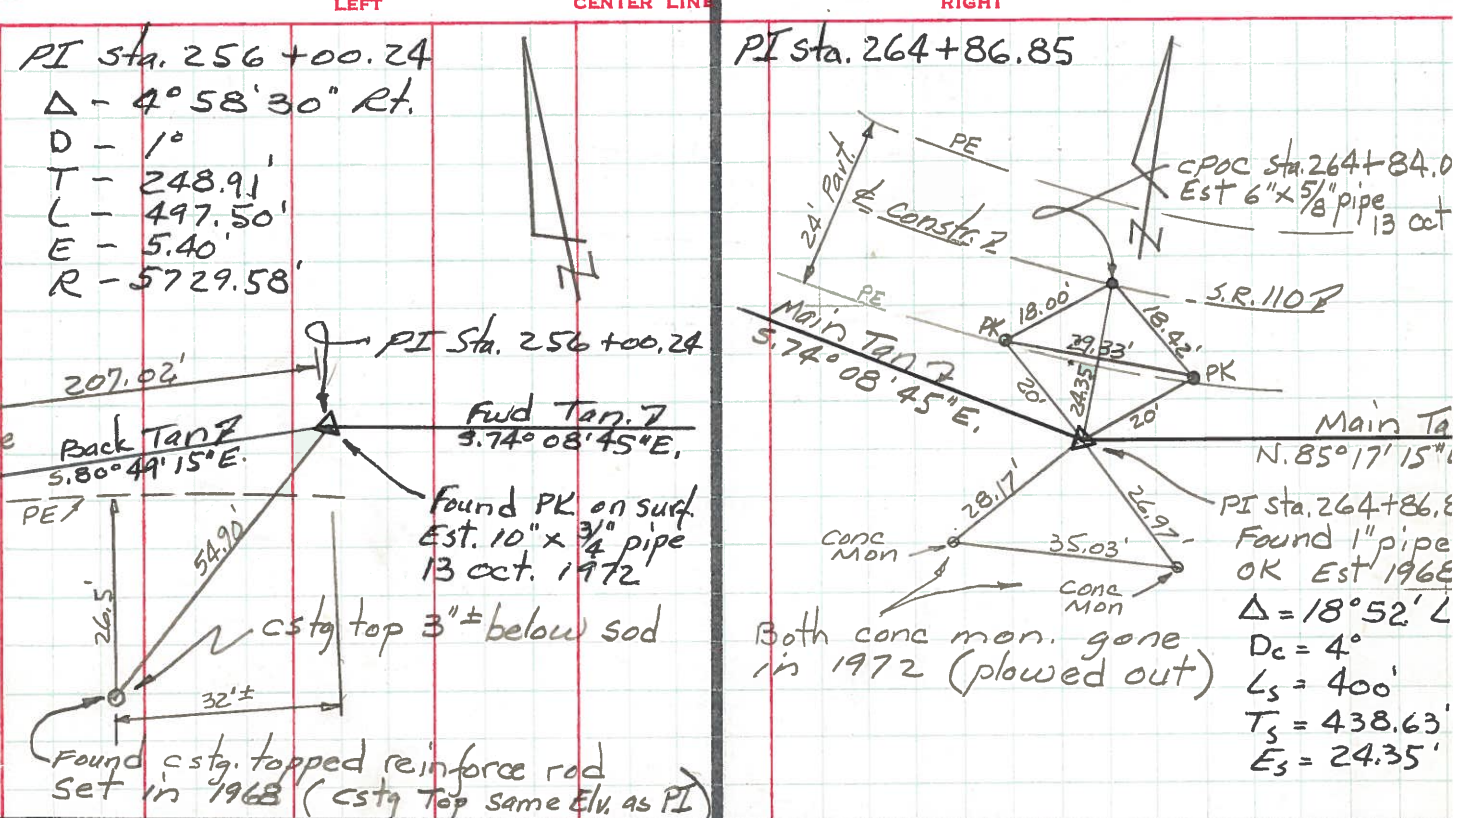 LEFT
CENTER LINE
RIGHT
PI sta. 256+00.24
Δ - 4°58'30" Rt.
D - 1°
T - 248.91'
L - 497.50'
E - 5.40'
R - 5729.58'
N
PI Sta. 256+00.24
207.02'
Back Tan
S.80°49'15"E.
Fwd Tan.
S.74°08'45"E.
PE
54.90'
26.5'
32'±
Found PK on surf.
Est. 10" x 3/4" pipe
13 oct. 1972
cstg top 3"± below sod
Found cstg. topped reinforce rod
Set in 1968 (cstg Top same Elv. as PI)
PI sta. 264+86.85
N
PE
24' Pavt.
℄ Constr.
CPOC sta. 264+84.0
Est 6" x 5/8" pipe
13 oct
S.R. 110
PE
Main Tan
S.74°08'45"E.
PK
18.00'
18.42'
29.33'
PK
20'
24.35'
20'
Main Ta
N.85°17'15"
28.17'
26.97'
35.03'
Conc
Mon
Conc
Mon
Both conc mon. gone
in 1972 (plowed out)
PI sta. 264+86.8
Found 1" pipe
OK Est 1968
Δ = 18°52' L
Dc = 4°
Ls = 400'
Ts = 438.63'
Es = 24.35'